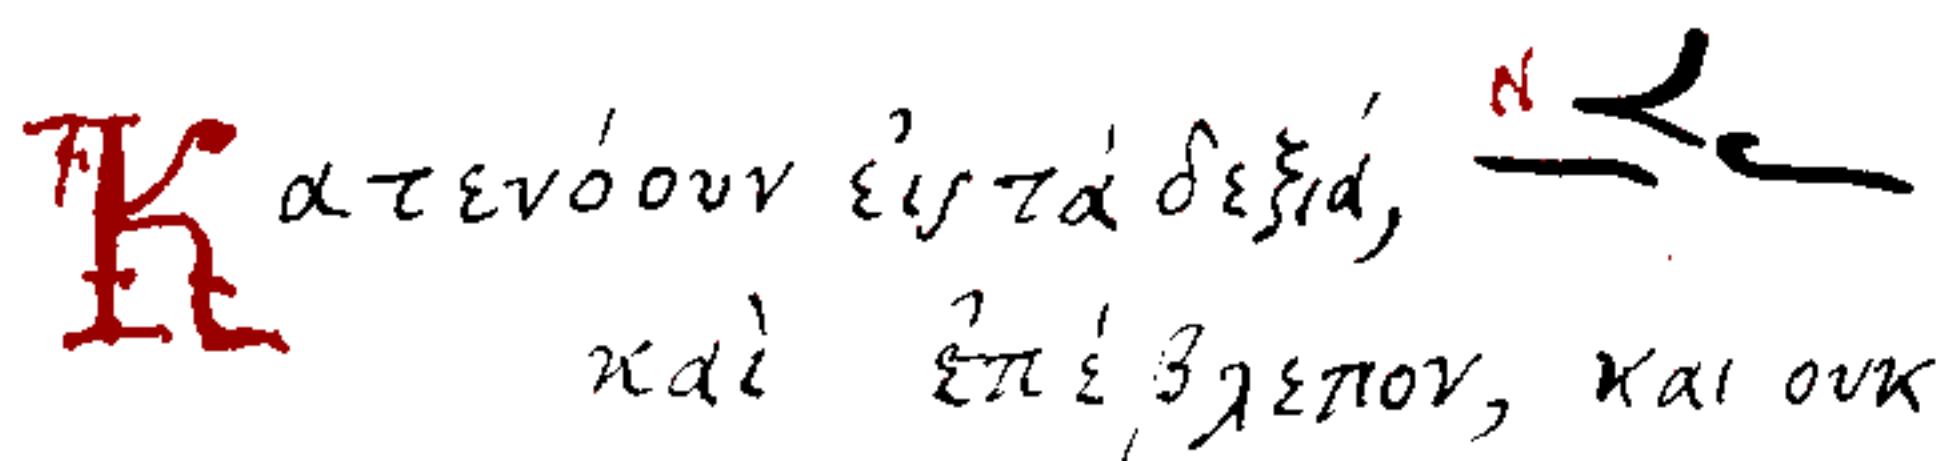 Κατενόουν εἰς τὰ δεξιά,
καὶ ἐπέβλεπον, και ουκ